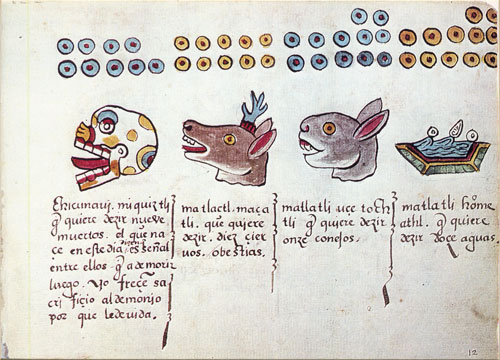 chicunavi, miquiztli
q̄ quiere dezir nueve
muertos. el que na
ce en este dia, es señal
entre ellos q̄ a de morir
luego. Yo freçen sa
cri fiçio al demonjo
por que le de vida.
matlactl. maça
tli. que quiere
dezir. diez cier
vos. o bestias.
matlatli uçe toch
tli q̄ quiere dezir
onze conejos.
matlatli home
athl. q̄ quiere
dezir doce aguas.
12